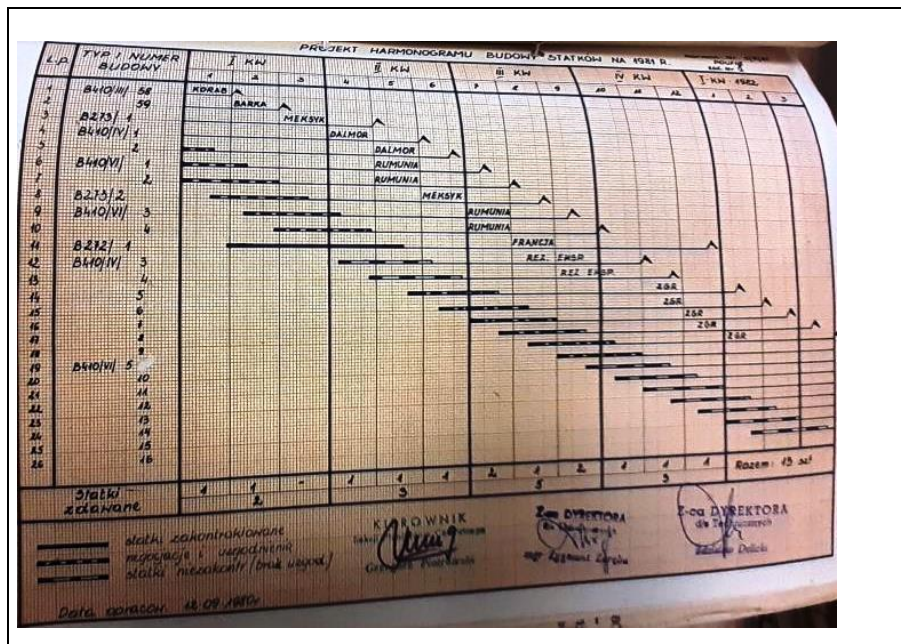 PROJEKT HARMONOGRAMU BUDOWY STATKÓW NA 1981 R.
L.P. TYP I NUMER BUDOWY I KW II KW III KW IV KW I KW 1982
1 2 3 4 5 6 7 8 9 10 11 12 1 2 3
1 B410/III/ 58 KORAB
2 59 BARKA
3 B273/ 1 MEKSYK
4 B410/IV/ 1 DALMOR
5 2 DALMOR
6 B410/VI/ 1 RUMUNIA
7 2 RUMUNIA
8 B273/2 MEKSYK
9 B410/VI/ 3 RUMUNIA
10 4 RUMUNIA
11 B272/ 1 FRANCJA
12 B410/IV/ 3 REZ. EKSP.
13 4 REZ. EKSP.
14 5 ZGR
15 6 ZGR
16 7 ZGR
17 8 ZGR
18 9 ZGR
19 B410/VI/ 5
20 10
21 11
22 12
23 13
24 14
25 15
26 16
Statki zdawane 1 1 - 1 1 1 2 1 2 1 1 1 Razem: 13 szt
2 3 5 3
statki zakontraktowane
negocjacje i uzgodnienia
statki niezakontr. (brak uzgod.)
KIEROWNIK
Z-ca DYREKTORA
mgr Zygmunt
Z-ca DYREKTORA
d/s Technicznych
Zdzisław
Data opracow. 12.09.1980r